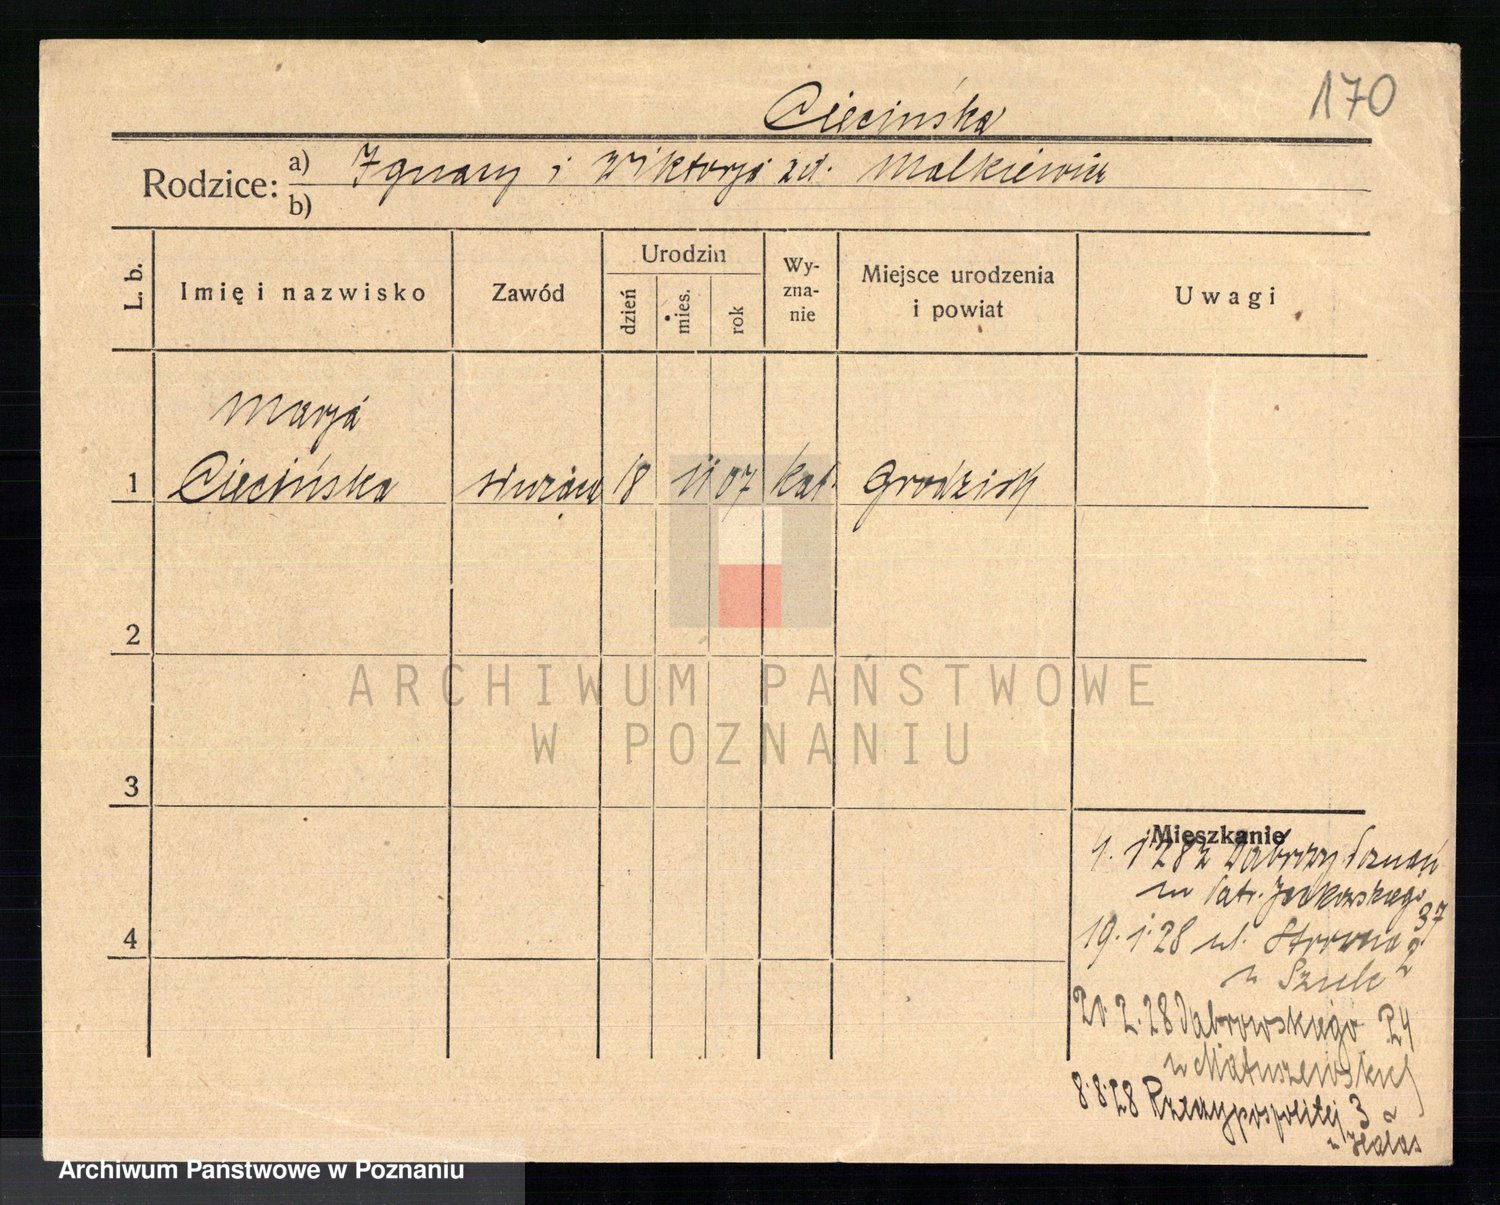 170
Ciecińska
Rodzice: a) Ignacy i Wiktorja zd. Malkiewicz
b)
L. b. Imię i nazwisko Zawód Urodzin dzień mies. rok Wy-zna-nie Miejsce urodzenia i powiat Uwagi
Marja
1 Ciecińska służąca 18 11 07 kat. Grodzisk
2
3
4
Mieszkanie
4. 1 28 z Poznań
Patr. Jackowskiego 37
19. 1. 28 ul. 2
u
20 2. 28 Dąbrowskiego 24
u Matuszewskiej
8.8.28 Rzeczypospolitej 3
u Halas
ARCHIWUM PAŃSTWOWE
W POZNANIU
Archiwum Państwowe w Poznaniu